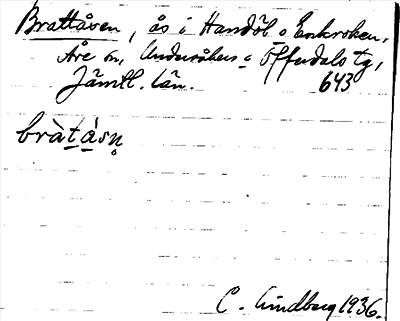 Brattåsen, ås i Handöl o Enkroken,
Åre sn, Undersåkers o Offerdals tg,
Jämtl. län. 643
bràtásn̥
C. Lindberg 1936.